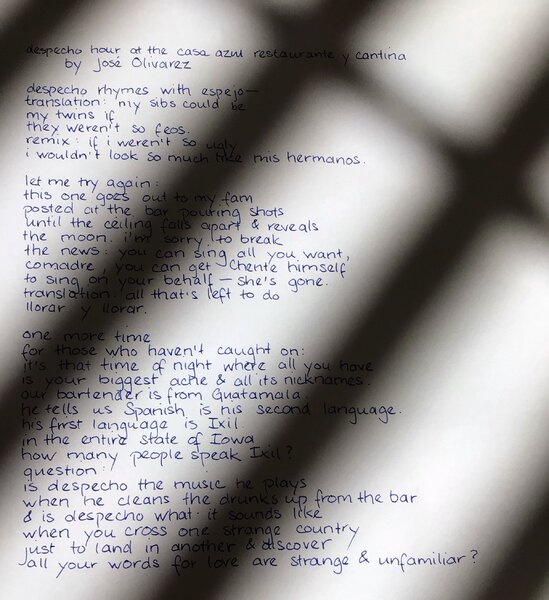 despecho hour at the casa azul restaurante y cantina
by José Olivarez
despecho rhymes with espejo—
translation: my sibs could be
my twins if
they weren't so feos.
remix: if i weren't so ugly
i wouldn't look so much like mis hermanos.
let me try again:
this one goes out to my fam
posted at the bar pouring shots
until the ceiling falls apart & reveals
the moon. i'm sorry to break
the news: you can sing all you want,
comadre, you can get Chente himself
to sing on your behalf — she's gone.
translation: all that's left to do
llorar y llorar.
one more time
for those who haven't caught on:
it's that time of night where all you have
is your biggest ache & all its nicknames.
our bartender is from Guatamala.
he tells us Spanish is his second language.
his first language is Ixil.
in the entire state of Iowa
how many people speak Ixil?
question:
is despecho the music he plays
when he cleans the drunks up from the bar
& is despecho what it sounds like
when you cross one strange country
just to land in another & discover
all your words for love are strange & unfamiliar?